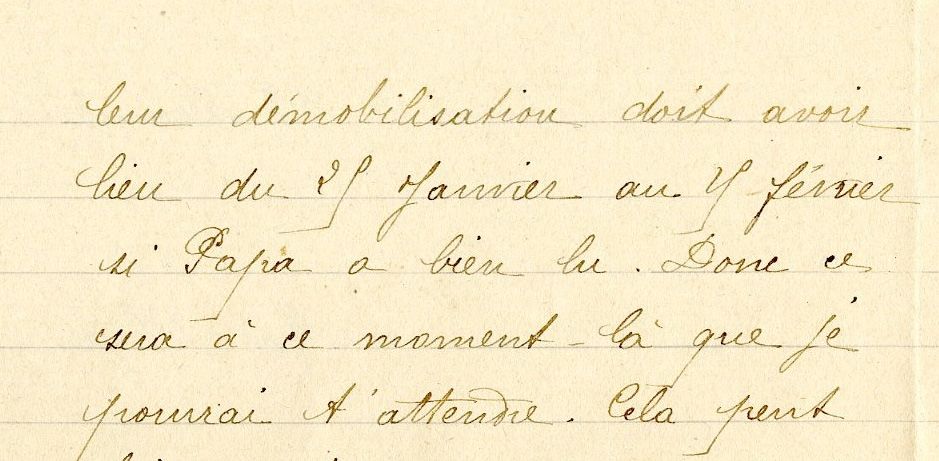 leur démobilisation doit avoir
lieu du 25 Janvier au 5 février
si Papa a bien lu. Donc ce
sera à ce moment-là que je
pourrai t'attendre. Cela peut